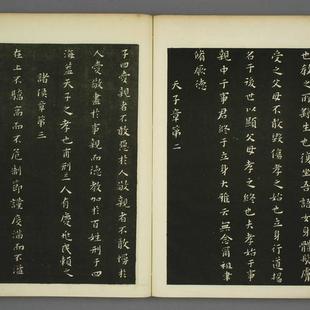 也教之所由生也復坐吾語女身體髮膚
受之父母不敢毀傷孝之始也立身行道揚
名于後世以顯父母孝之終也夫孝始于事
親中于事君終于立身大雅云無念爾祖聿
脩厥德
天子章第二
子曰愛親者不敢惡於人敬親者不敢慢於
人愛敬盡於事親而德教加於百姓刑于四
海蓋天子之孝也甫刑云一人有慶兆民賴之
諸侯章第三
在上不驕高而不危制節謹度滿而不溢